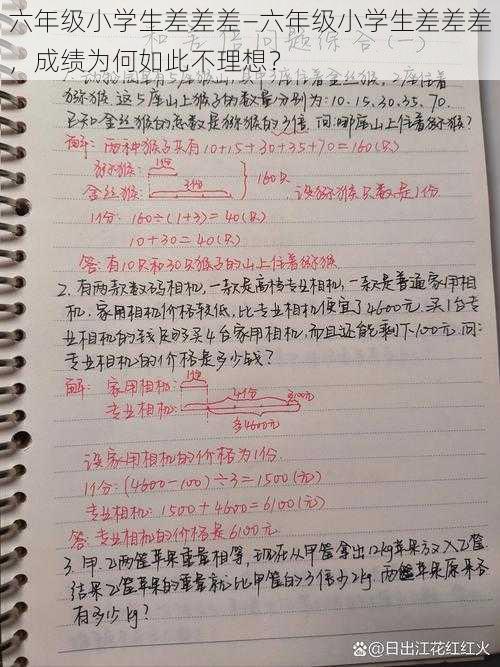 六年级小学生差差差—六年级小学生差差差
成绩为何如此不理想？
猕猴.这5座山上猴子的数量分别为:10.15.30.35.70.
已知金丝猴的总数是猕猴的3倍.问:哪座山上住着猕猴?
解: 两种猴子共有10+15+30+35+70=160(只)
1份
猕猴:
金丝猴:
3份
160只
设猕猴只数是1份.
1份: 160÷(1+3)=40(只)
10+30=40(只)
答:有10只和30只猴子的山上住着猕猴.
2.有两款数码相机,一款是高档专业相机,一款是普通家用相
机.家用相机价格较低,比专业相机便宜了4600元.买1台专
业相机的钱足够买4台家用相机,而且还能剩下100元.问:
专业相机的价格是多少钱?
解: 家用相机:
1份
专业相机:
4份
100元
多4600元
设家用相机的价格为1份.
1份:(4600-100)÷3=1500(元)
专业相机: 1500+4600=6100(元)
答:专业相机的价格是6100元.
3.甲.乙两筐苹果重量相等,现在从甲筐拿出12kg苹果放入乙筐
结果乙筐苹果的重量就比甲筐的3倍少2kg.两筐苹果原来各
有多少kg?
@日出江花红红火